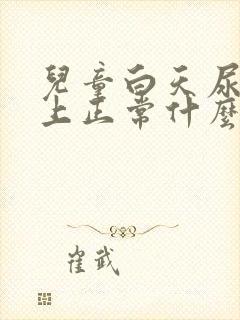 兒童白天尿
上正常什麼
崔武